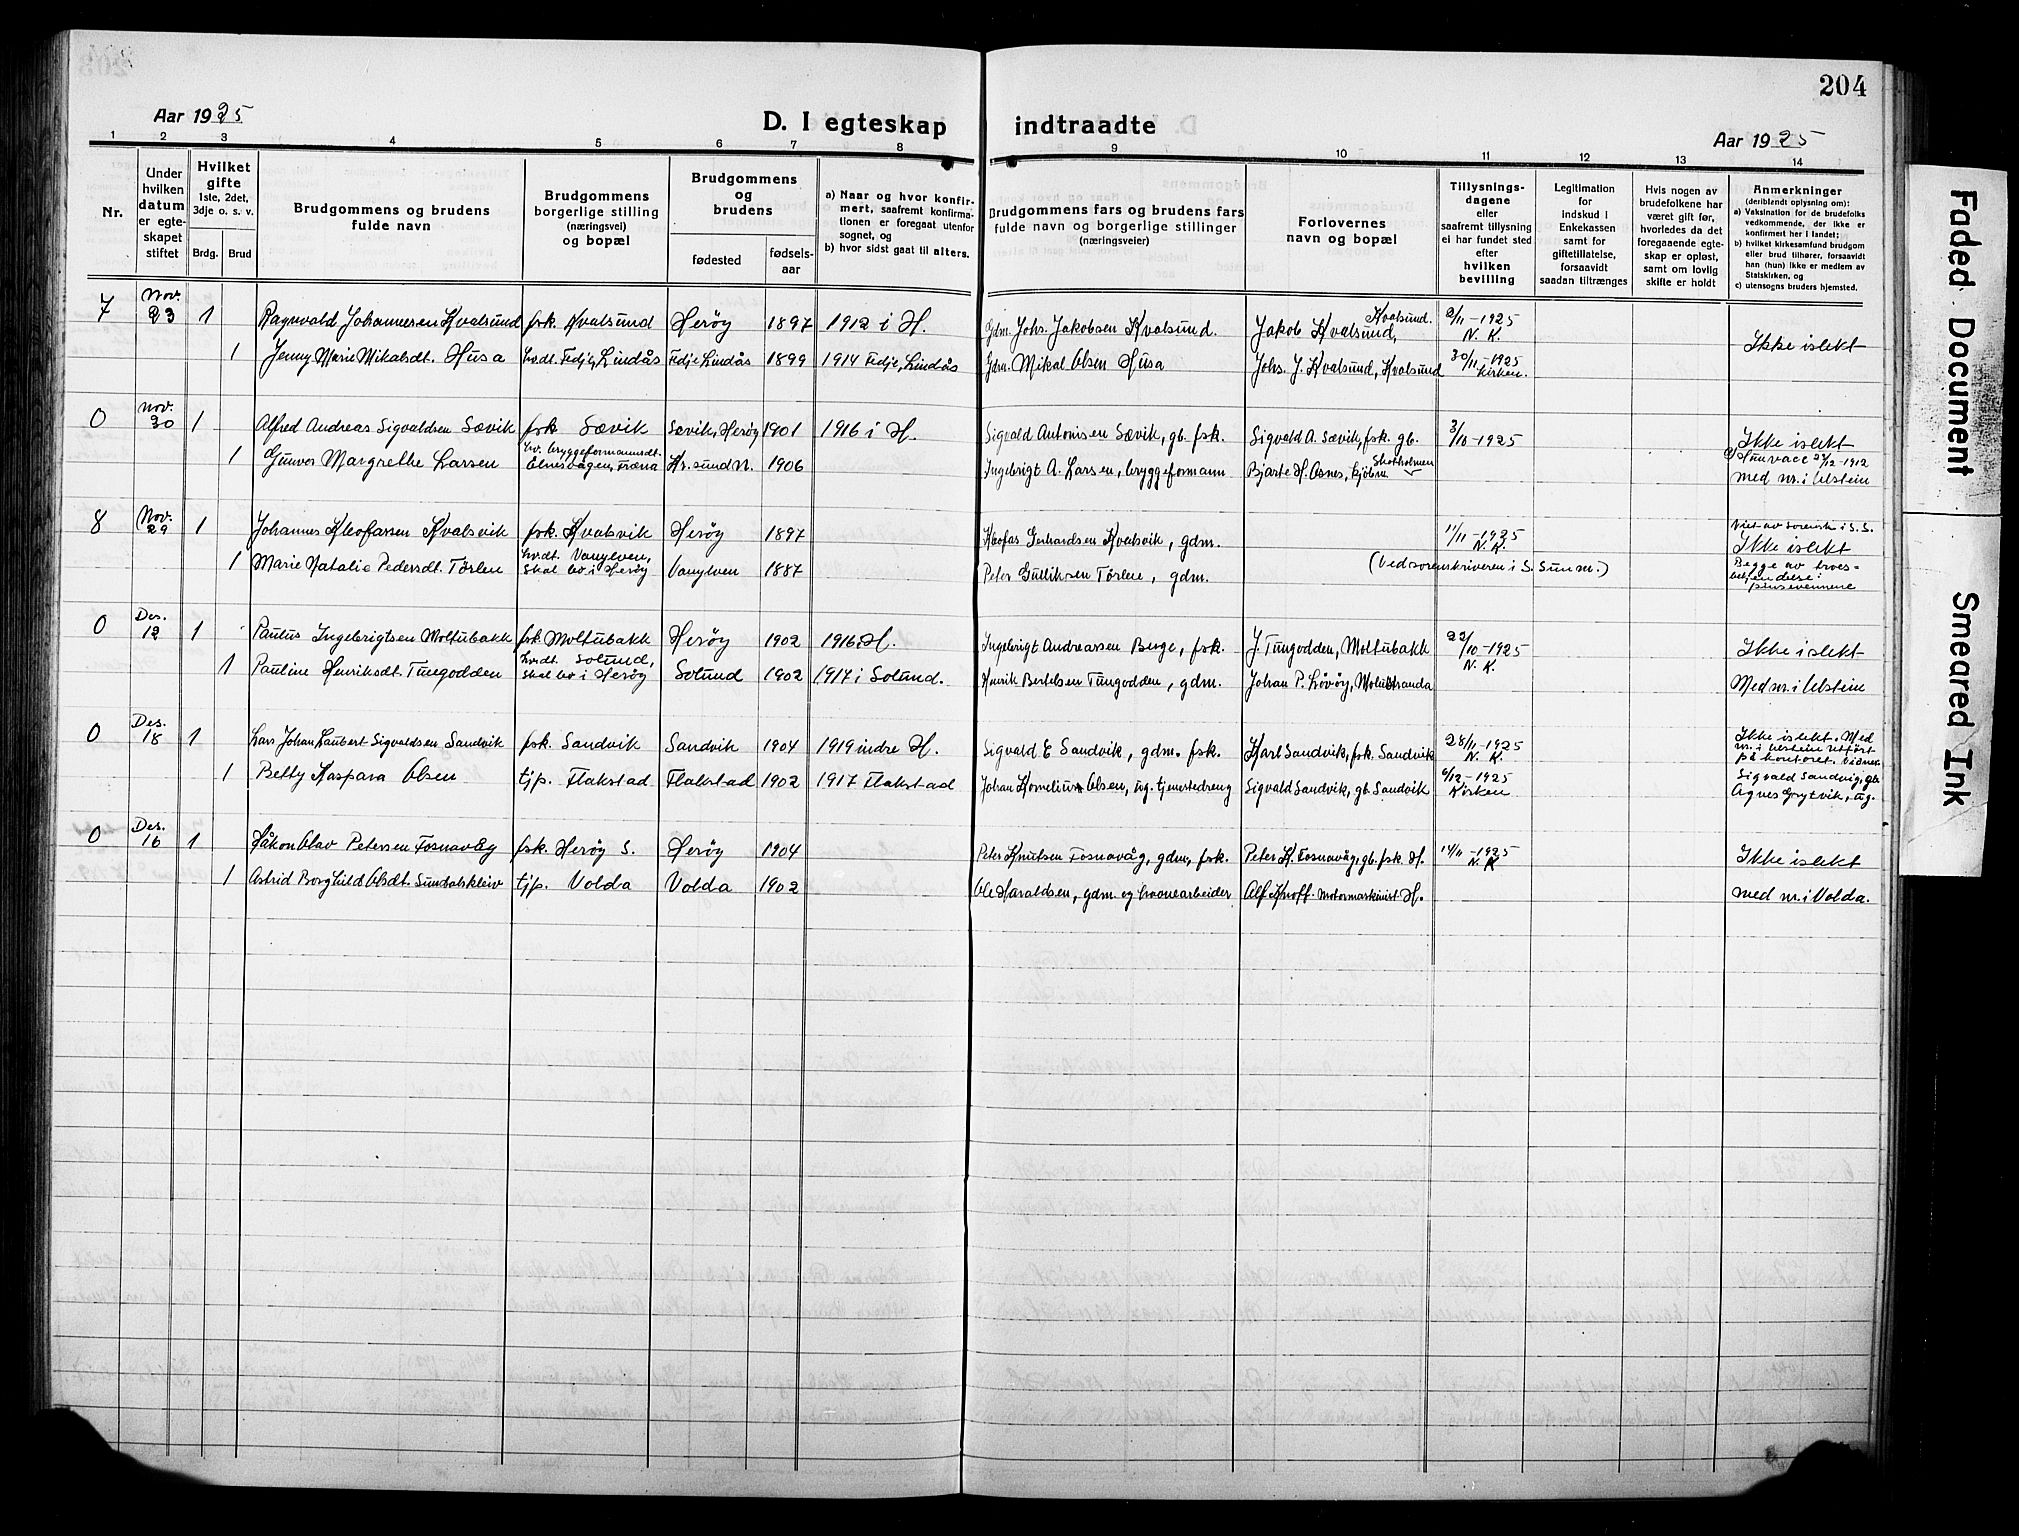 204
Aar 1925
D. I egteskap indtraadte
Aar 1925
1 2 3 4 5 6 7 8 9 10 11 12 13 14
Nr.
Under hvilken datum er egteskapet stiftet
Hvilket gifte 1ste, 2det, 3dje o. s. v.
Brdg. Brud
Brudgommens og brudens fulde navn
Brudgommens borgerlige stilling (næringsvei) og bopæl
Brudgommens og brudens
fødested
fødselsaar
a) Naar og hvor konfirmert, saafremt konfirmationen er foregaat utenfor sognet, og
b) hvor sidst gaat til alters.
Brudgommens fars og brudens fars fulde navn og borgerlige stillinger (næringsveier)
Forlovernes navn og bopæl
Tillysningsdagene eller saafremt tillysning ei har fundet sted efter hvilken bevilling
Legitimation for indskud i Enkekassen samt for giftetillatelse, forsaavidt saadan tiltrænges
Hvis nogen av brudefolkene har været gift før, hvorledes da det foregaaende egteskap er opløst, samt om lovlig skifte er holdt
Anmerkninger (deriblandt oplysning om):
a) Vaksination for de brudefolks vedkommende, der ikke er konfirmert her i landet;
b) hvilket kirkesamfund brudgom eller brud tilhører, forsaavidt han (hun) ikke er medlem av Statskirken, og
c) utensogns bruders hjemsted.
7 Nov. 23 1 Ragnvald Johannesen Kvalsund fsk. Kvalsund Herøy 1897 1912 i H. Gdm. Johs. Jakobsen Kvalsund. Jakob Kvalsund, Kvalsund. 2/11-1925 N. K. Ikke i slekt
1 Jenny Marie Mikalsdt. Husa hvdt. Fedje, Lindås Fedje Lindås 1899 1914 Fedje, Lindås Gdm. Mikal Olsen Husa Johs. J. Kvalsund, Kvalsund 30/11-1925 Kirken.
0 Nov. 30 1 Alfred Andreas Sigvaldsen Sævik fsk. Sævik Sævik, Herøy 1901 1916 i H. Sigvald Antonsen Sævik, gb. fsk. Sigvald A. Sævik, fsk. gb. 3/10-1925 Ikke i slekt
1 Gunvor Margrethe Larsen hv. bryggeformannsdt. Elnesvågen, Fræna Kr.sund N. 1906 Ingebrigt A. Larsen, bryggeformann Bjarte H. Osnes, kjøbm. Skotholmen 1912 med nr. i Ulstein
8 Nov. 29 1 Johannes Kleofassen Kvalsvik fsk. Kvalsvik Herøy 1897 Kleofas Gerhardsen Kvalsvik, gdm. 11/11-1925 N. K. Viet av sorensk i S. S. Ikke i slekt
1 Marie Natalie Pedersdt. Tørlen hvdt. Vanylven, skal bo i Herøy Vanylven 1887 Peter Gulliksen Tørlen, gdm. (Ved sorenskriveren i S. Sunm.) Begge av troesbekjendelse: pinsevennene
0 Des. 12 1 Paulus Ingebrigtsen Moltubakk fsk. Moltubakk Herøy 1902 1916 H. Ingebrigt Andreassen Berge, fsk. J. Tungodden, Moltubakk 22/10-1925 N. K. Ikke i slekt
1 Pauline Henriksdt. Tungodden hvdt. Solund, skal bo i Herøy Solund 1902 1917 i Solund. Henrik Bertelsen Tungodden, gdm. Johan P. Løvøy, Moltustranda Med nr. i Ulstein
0 Des. 18 1 Lars Johan Laubert Sigvaldsen Sandvik fsk. Sandvik Sandvik 1904 1919 indre H. Sigvald E Sandvik, gdm. fsk. Karl Sandvik, fsk. Sandvik 28/11-1925 N. K. Ikke i slekt. Med nr. i Ulstein utført på kontoret. Vidner:
1 Betty Kaspara Olsen tjp. Flakstad Flakstad 1902 1917 Flakstad Johan Kornelius Olsen, ug. tjenestedreng Sigvald Sandvik, gb. Sandvik 6/12-1925 Kirken Sigvald Sandvig, gb. Agnes Grytvik, ug.
0 Des. 16 1 Håkon Olav Petersen Fosnavåg fsk. Herøy S. Herøy 1904 Peter Knutsen Fosnavåg, gdm, fsk. Peter K. Fosnavåg, gb. fsk. H. 14/11-1925 N. K Ikke i slekt
1 Astrid Borghild Olsdt. Sundalskleiv tjp. Volda Volda 1902 Ole Haraldsen, gdm. og banearbeider Alf Knoff. Motormaskinist H. med nr. i Volda.
Faded Document
Smeared Ink